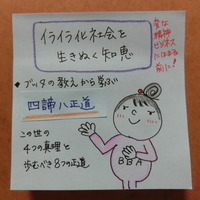 イライラ化社会を
生きぬく知恵
変な
精神
ビジネス
にはまる
前に!
・ブッダの教えから学ぶ
四諦八正道
この世の
4つの真理と
歩むべき8つの正道
BBA